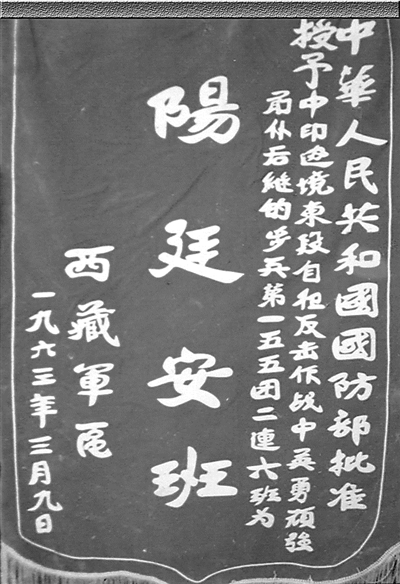 中華人民共和國國防部批准
授予中印边境東段自卫反击作战中英勇頑強
前仆后继的步兵第一五五团二連六班为
陽廷安班
西藏軍区
一九六三年三月九日